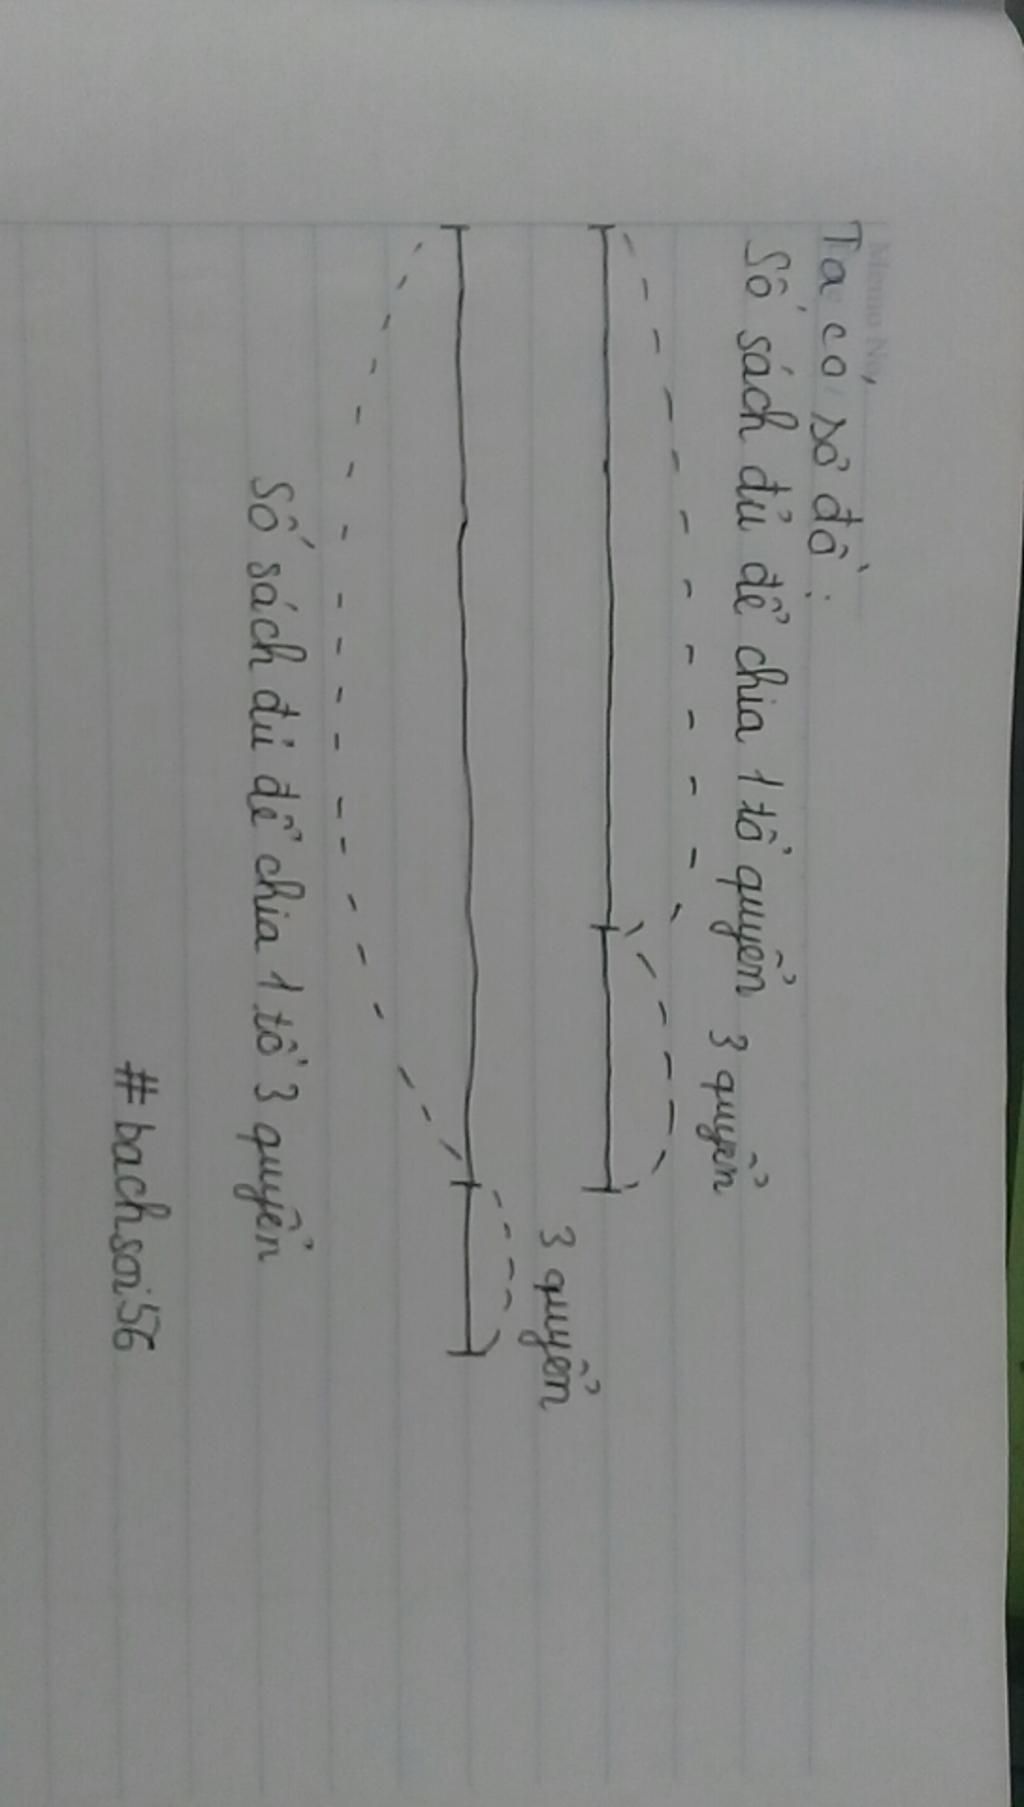 Ta có sơ đồ:
Số sách đủ để chia 1 tổ quyển 3 quyển
3 quyển
Số sách đủ để chia 1 tổ 3 quyển
#bachsoi56